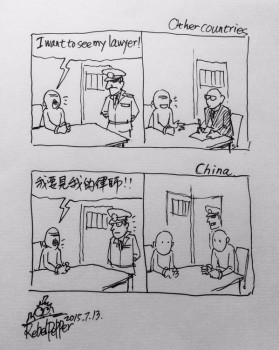 Other countries
I want to see my lawyer!
China
我要見我的律師!!
RebelPepper
2015.7.13.